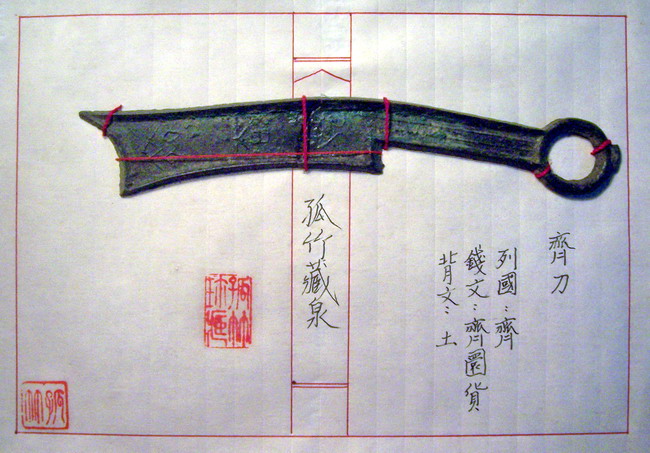 齊刀
列國：齊
錢文：齊圜貨
背文：土
孤竹藏泉